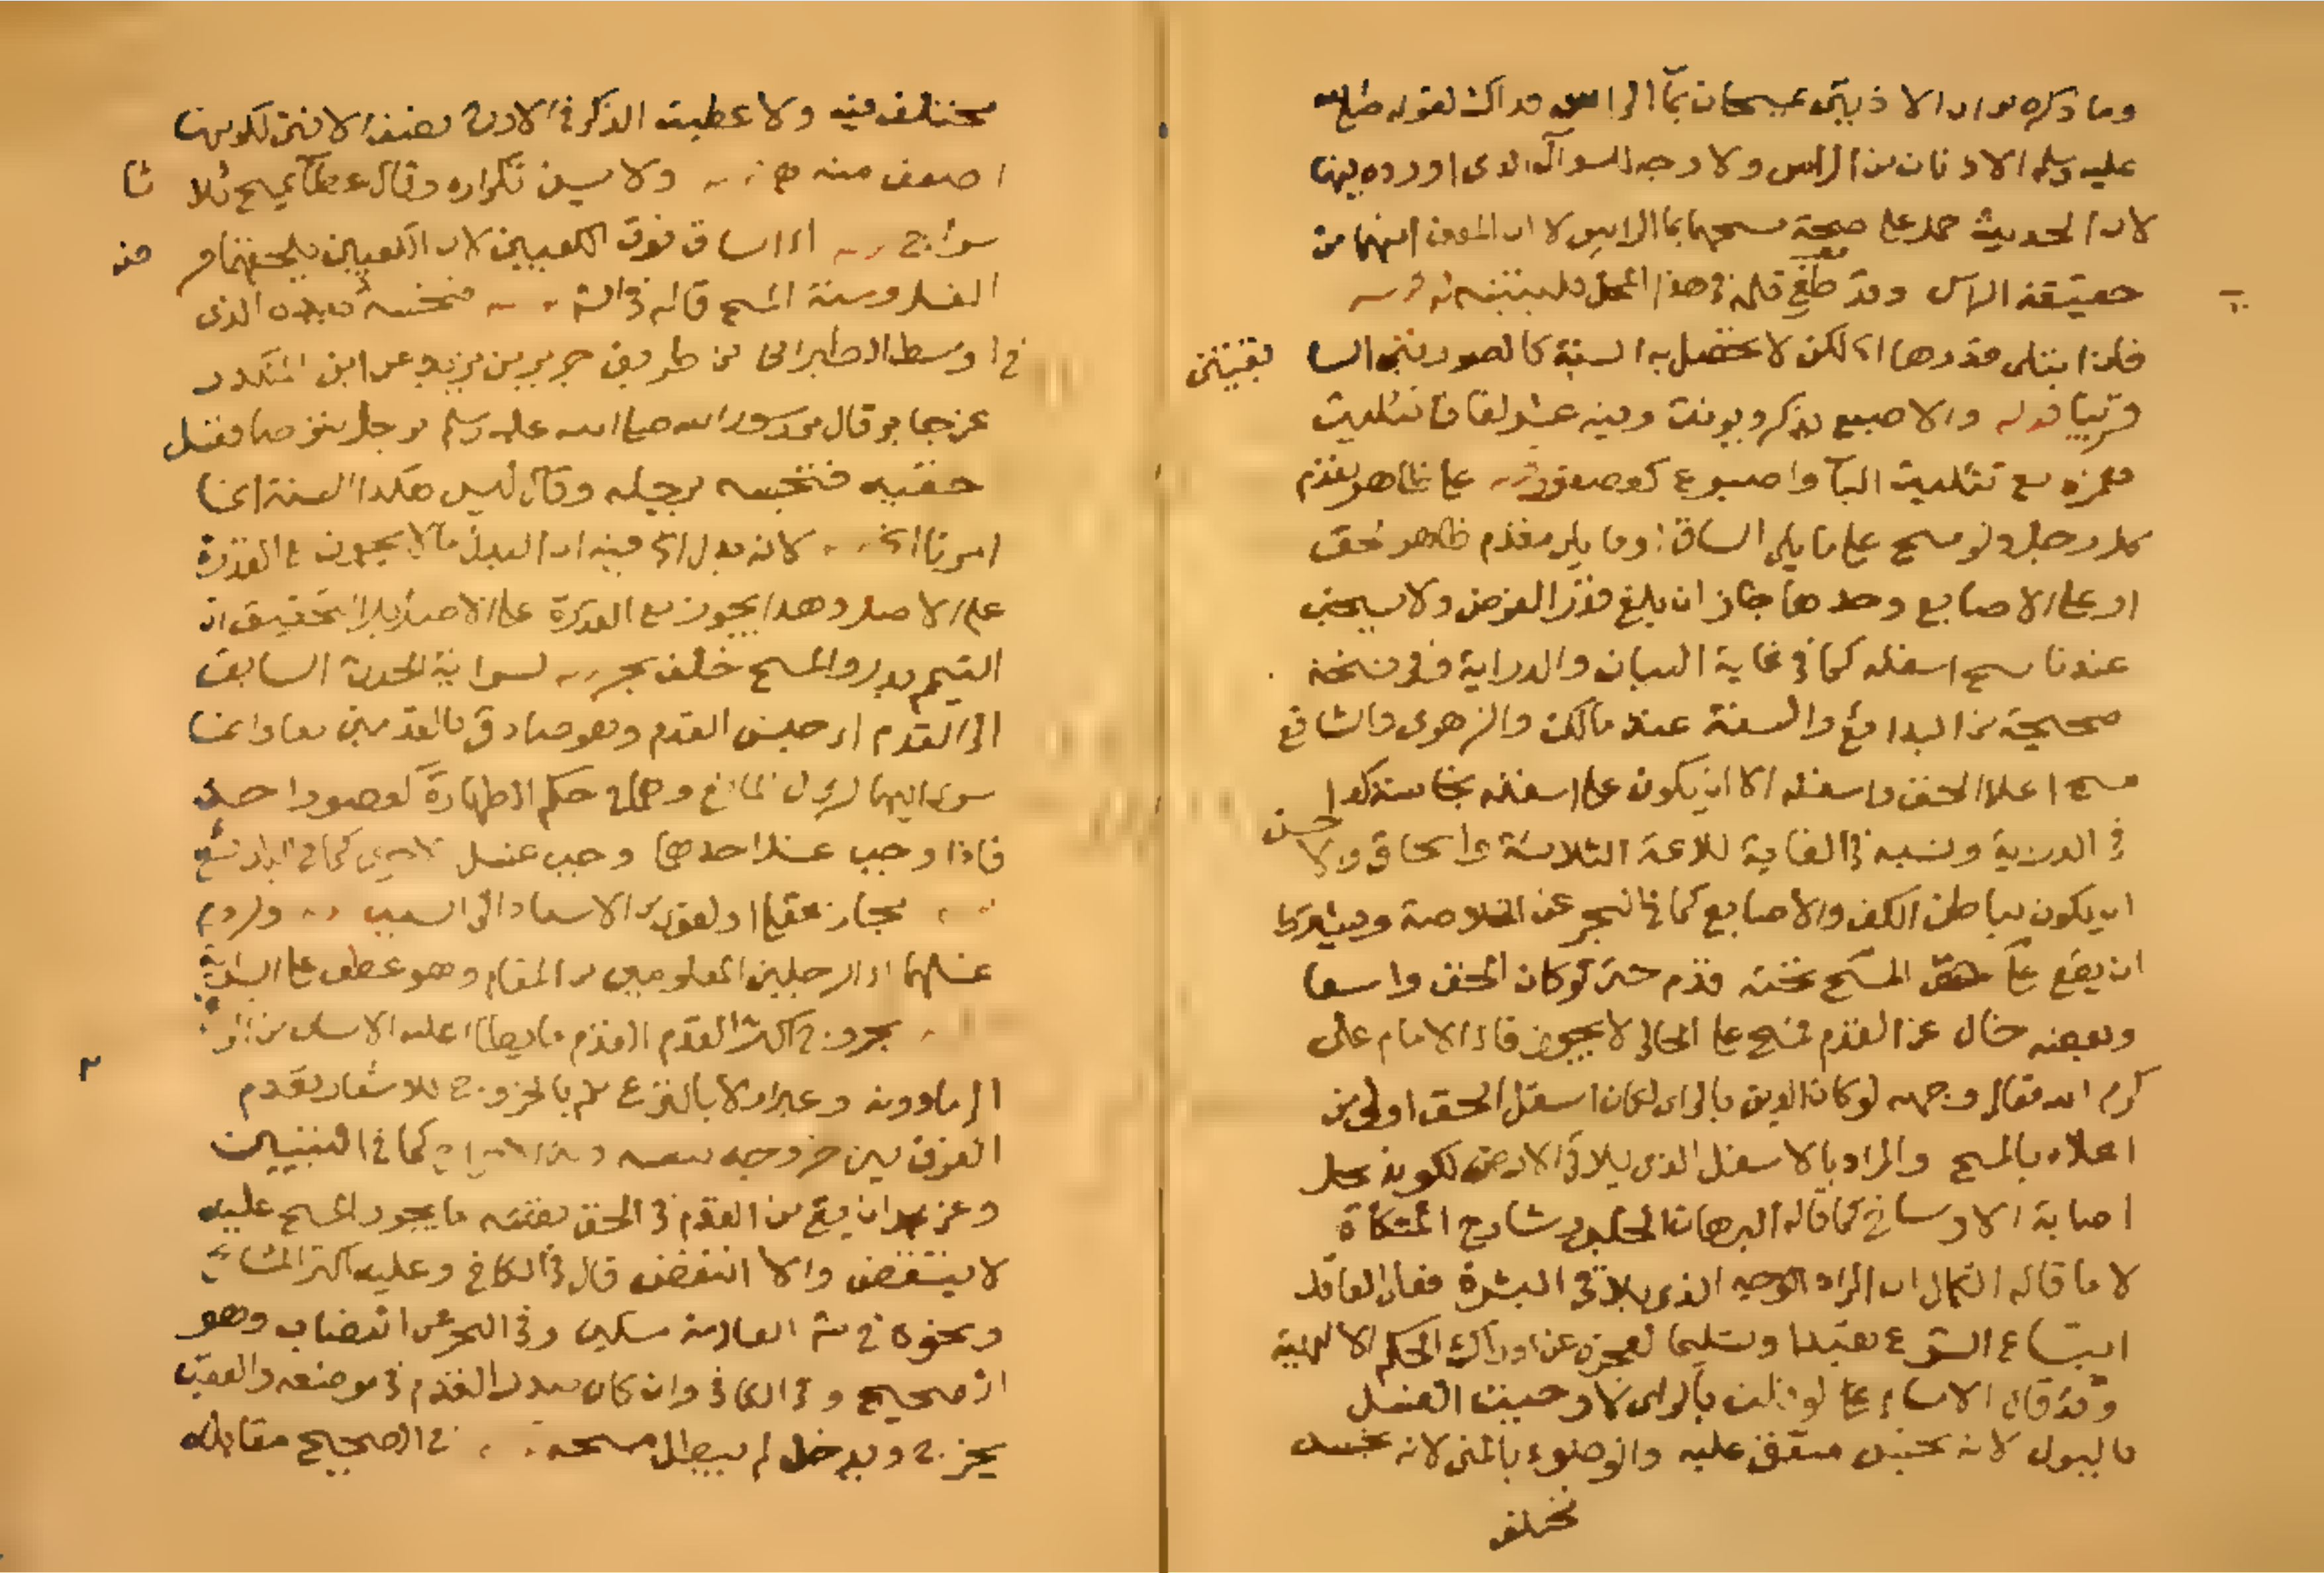 وما ذكره من ان الاذنين يمسحان بماء الراس فذاك لقوله صلى الله
عليه وسلم الاذنان من الراس ولا وجه للسوال الذي اورده بينها
لان الحديث حمل على صحة مسحهما بماء الراس لا ان المعنى انهما من
حقيقة الراس وقد طغى قلمه في هذا المحل فليتنبه له
فلذا قدرها اى لكن لا تحصل به السنة كالصورتين السا
بقيتين
قريبا قوله والاصبع يذكر ويونث وفيه عشر لغات تثليث
همزه مع تثليث الباء واصبوع كعصفور على ظاهر مقدم
كل رجل ولو مسح على ما يلى الساق او ما يلى مقدم ظاهر خف
او على الاصابع وحدها جاز ان بلغ قدر الفرض ولا يستحب
عندنا مسح اسفله كما في غاية البيان والدراية وفي نسخة
صحيحة من البدائع والسنة عند مالك والزهرى والشافع
مسح اعلا الخف واسفله الا ان يكون على اسفله نجاسة كذا
في الدراية ونسبه في الغاية للائمة الثلاثة واسحاق والا
حسن
ان يكون بباطن الكف والاصابع كما في البحر عن الخلاصة ويشترط
ان يقع على المسح تحته قدم حتى لو كان الخف واسعا
وبعضه خال عن القدم فمسح على الخالى لا يجوز قال الامام على
كرم الله وجهه لو كان الدين بالراى لكان اسفل الخف اولى من
اعلاه بالمسح والمراد بالاسفل الذى يلاقى الارض لكونه محل
اصابة الاوساخ كما قاله البرهان الحلبى و شارح المشكاة
لا ما قاله الكمال ان المراد الوجه الذى يلاقى البشرة فعلى العاقل
اتباع الشرع تعبدا وتسليما لعجزه عن ادراك الحكم الالهية
وقد قال الامام لو قلت بالراى لاوجبت الغسل
بالبول لانه نجس متفق عليه والوضوء بالمنى لانه نجس
مختلف
مختلف فيه ولا عطيت الذكر في الارث نصف الانثى لكونها
اضعف منه ولا يسن تكراره وقال عطاء يمسح ثلا
ثا
سراج اى الساق فوق الكعبين لان الكعبين يلحقهما فر
ض
الغسل وسنة المسح قاله في فنخسه بيده الذى
في اوسط الطبرانى من طريق جرير بن يزيد عن ابن المنكدر
عن جابر قال مر رسول الله صلى الله عليه وسلم برجل يتوضا فغسل
خفيه فنخسه برجله وقال ليس هكذا السنة انما
امرنا الخ لانه بدل اى فيه ان البدل ما لا يجوز مع القدرة
على الاصل وهذا يجوز مع القدرة على الاصل بل التحقيق ان
التيمم بدل والمسح خلف بحر لسراية الحدث السابق
الى القدم اى جنس القدم وهو صادق بالقدمين معا وانما
سرى اليهما لزوال المانع وهما في حكم الطهارة كعضو واحد
فاذا وجب غسل احدهما وجب غسل الاخرى كما في البدائع
مجاز عقلى او لغوى من الاسناد الى السبب ولزوم
غسلهما اى الرجلين المعلومين من المقام وهو عطف على
بحر وخروج اكثر القدم القدم ما يطأ عليه الانسان من
الى ما دونه وعبر اولا بالنزع ثم بالخروج للاشعار بعدم
الفرق بين خروجه بنفسه وبين كما في التبيين
وعن محمد ان بقى من القدم في الخف بقيته ما يجوز المسح عليه
لا ينتقض والا انتقض قال في الكافي وعليه اكثر المشايخ
ونحوه في شرح العلامة مسكين وفي البحر عن النصاب وهو
الصحيح وفي الكافي وان كان صدر القدم في موضعه والعقب
يخرج ويدخل لم يبطل مسحه في الصحيح مقابله